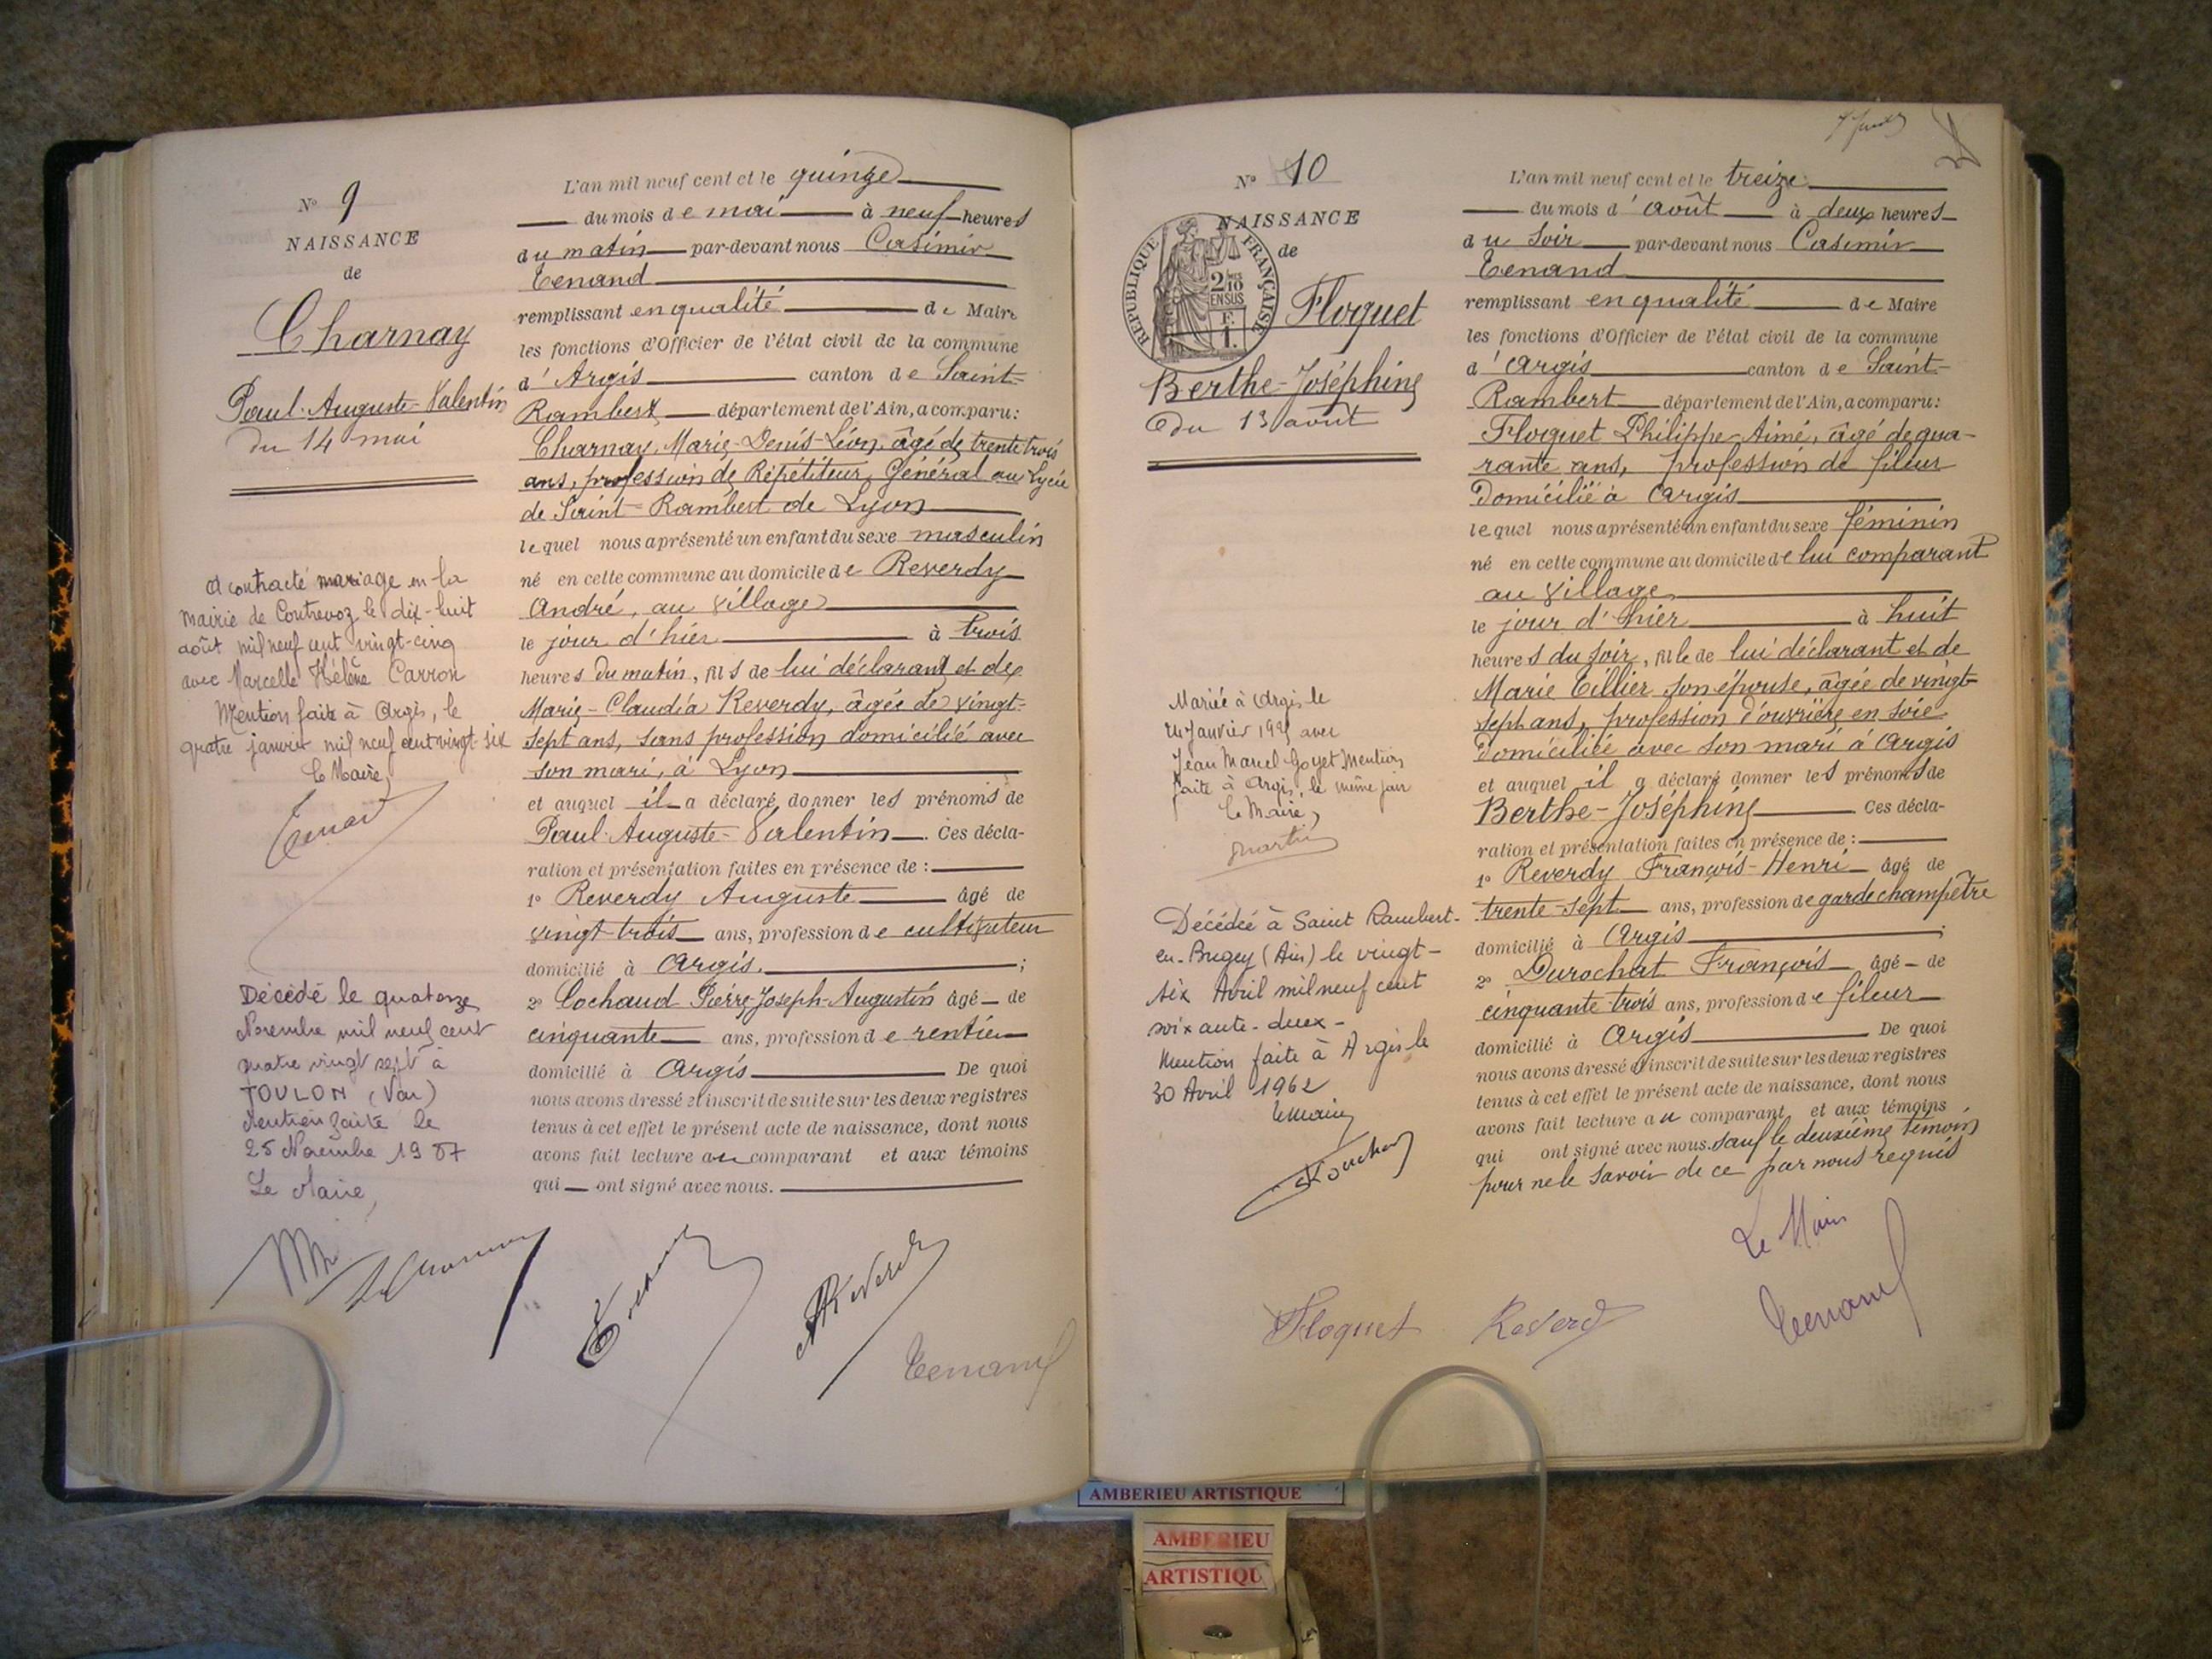 N° 9
NAISSANCE
de
Charnay
Paul-Auguste-Valentin
du 14 mai
A contracté mariage en la
mairie de Contrevoz le dix-huit
août mil neuf cent vingt-cinq
avec Marcelle Hélène Carron
Mention faite à Argis, le
quatre janvier mil neuf cent vingt-six
Le Maire,
Décédé le quatorze
Novembre mil neuf cent
quatre vingt sept à
TOULON (Var)
Mention faite le
25 Novembre 1987
Le Maire,
L'an mil neuf cent et le quinze
du mois de mai à neuf heures
du matin par-devant nous Casimir
Tenand
remplissant en qualité de Maire
les fonctions d'Officier de l'état civil de la commune
d'Argis canton de Saint-
Rambert département de l'Ain, a comparu:
Charnay, Marie-Denis-Léon, âgé de trente trois
ans, profession de Répétiteur Général au Lycée
de Saint-Rambert de Lyon
lequel nous a présenté un enfant du sexe masculin
né en cette commune au domicile de Reverdy
André, au village
le jour d'hier à trois
heures du matin, fils de lui déclarant et de
Marie-Claudia Reverdy, âgée de vingt-
sept ans, sans profession domiciliée avec
son mari, à Lyon
et auquel il a déclaré donner les prénoms de
Paul-Auguste-Valentin. Ces décla-
ration et présentation faites en présence de:
1° Reverdy Auguste âgé de
vingt-trois ans, profession de cultivateur
domicilié à Argis.;
2° Cochaud Pierre-Joseph-Augustin âgé de
cinquante ans, profession de rentier
domicilié à Argis De quoi
nous avons dressé et inscrit de suite sur les deux registres
tenus à cet effet le présent acte de naissance, dont nous
avons fait lecture au comparant et aux témoins
qui ont signé avec nous.
Tenand
N° 10
NAISSANCE
de
REPUBLIQUE FRANÇAISE
2/10 EN SUS
F. 1.
Floquet
Berthe-Joséphine
du 13 août
Mariée à Argis le
avec
Jean Marcel Goyet Mention
faite à Argis, le même jour
Le Maire,
Décédée à Saint Rambert-
en-Bugey (Ain) le vingt-
six Avril mil neuf cent
soixante-deux-
Mention faite à Argis le
30 Avril 1962
Le Maire
L'an mil neuf cent et le treize
du mois d'août à deux heures
du soir par-devant nous Casimir
Tenand
remplissant en qualité de Maire
les fonctions d'Officier de l'état civil de la commune
d'Argis canton de Saint-
Rambert département de l'Ain, a comparu:
Floquet Philippe-Aimé, âgé de qua-
rante ans, profession de fileur
domicilié à Argis
lequel nous a présenté un enfant du sexe féminin
né en cette commune au domicile de lui comparant
au village
le jour d'hier à huit
heures du soir, fille de lui déclarant et de
Marie Tillier son épouse, âgée de vingt-
sept ans, profession d'ouvrière en soie
domiciliée avec son mari à Argis
et auquel il a déclaré donner les prénoms de
Berthe-Joséphine Ces décla-
ration et présentation faites en présence de:
1° Reverdy François-Henri âgé de
trente-sept ans, profession de garde champêtre
domicilié à Argis;
2° Durochat François âgé de
cinquante trois ans, profession de fileur
domicilié à Argis De quoi
nous avons dressé et inscrit de suite sur les deux registres
tenus à cet effet le présent acte de naissance, dont nous
avons fait lecture au comparant et aux témoins
qui ont signé avec nous. sauf le deuxième témoin
pour ne le savoir de ce par nous requis
Le Maire
Floquet Reverdy Tenand
AMBERIEU ARTISTIQUE
AMBERIEU
ARTISTIQU